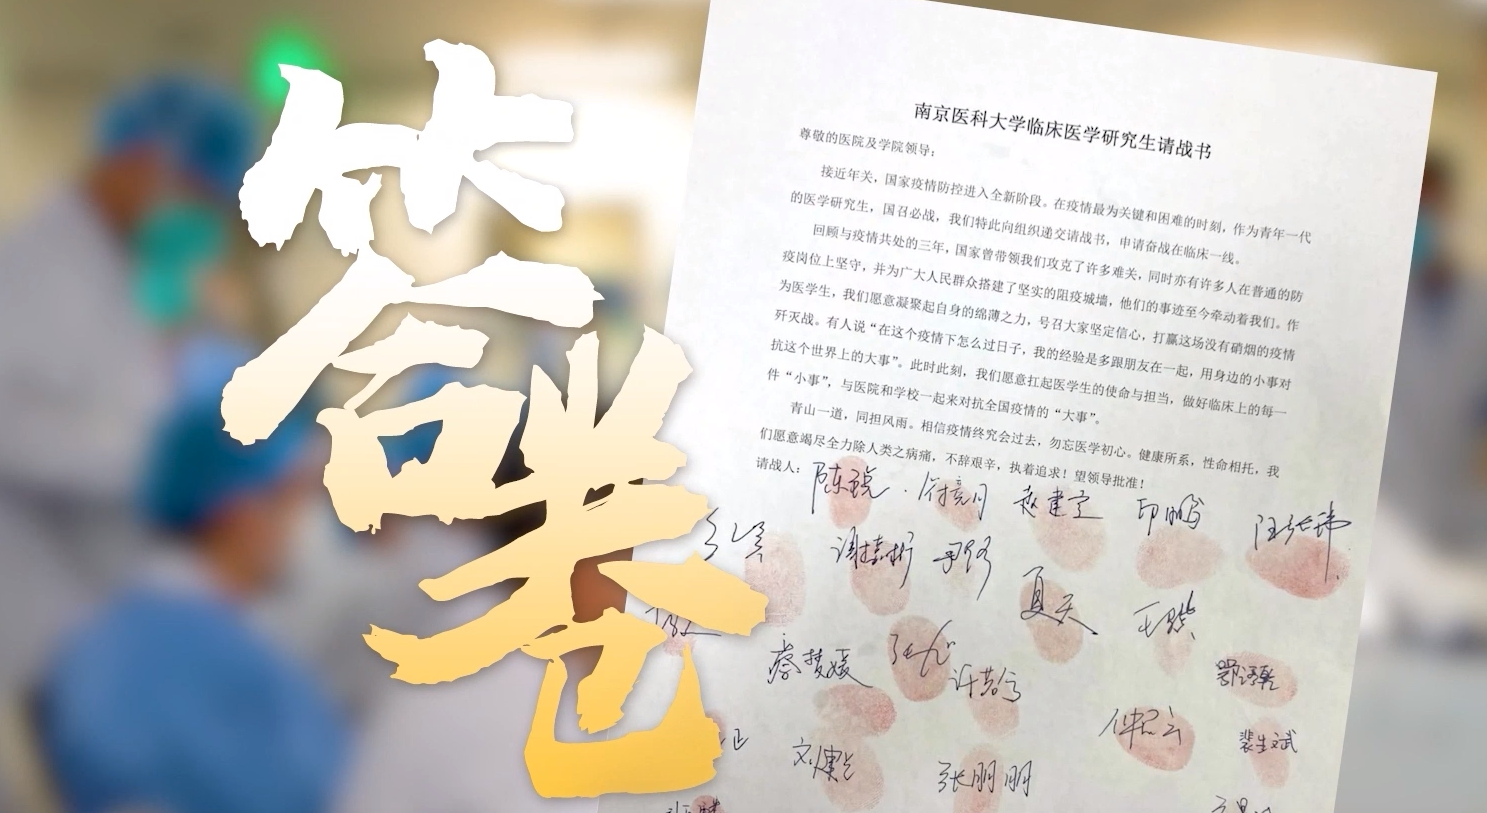 答卷
南京医科大学临床医学研究生请战书
尊敬的医院及学院领导：
接近年关，国家疫情防控进入全新阶段。在疫情最为关键和困难的时刻，作为青年一代
的医学研究生，国召必战，我们特此向组织递交请战书，申请奋战在临床一线。
回顾与疫情共处的三年，国家曾带领我们攻克了许多难关，同时亦有许多人在普通的防
疫岗位上坚守，并为广大人民群众搭建了坚实的阻疫城墙，他们的事迹至今牵动着我们。作
为医学生，我们愿意凝聚起自身的绵薄之力，号召大家坚定信心，打赢这场没有硝烟的疫情
歼灭战。有人说“在这个疫情下怎么过日子，我的经验是多跟朋友在一起，用身边的小事对
抗这个世界上的大事”。此时此刻，我们愿意扛起医学生的使命与担当，做好临床上的每一
件“小事”，与医院和学校一起来对抗全国疫情的“大事”。
青山一道，同担风雨。相信疫情终究会过去，勿忘医学初心。健康所系，性命相托，我
们愿意竭尽全力除人类之病痛，不辞艰辛，执着追求！望领导批准！
请战人： 赵建宝 印鹏
夏天
蔡梦媛
裴生斌
张朋朋